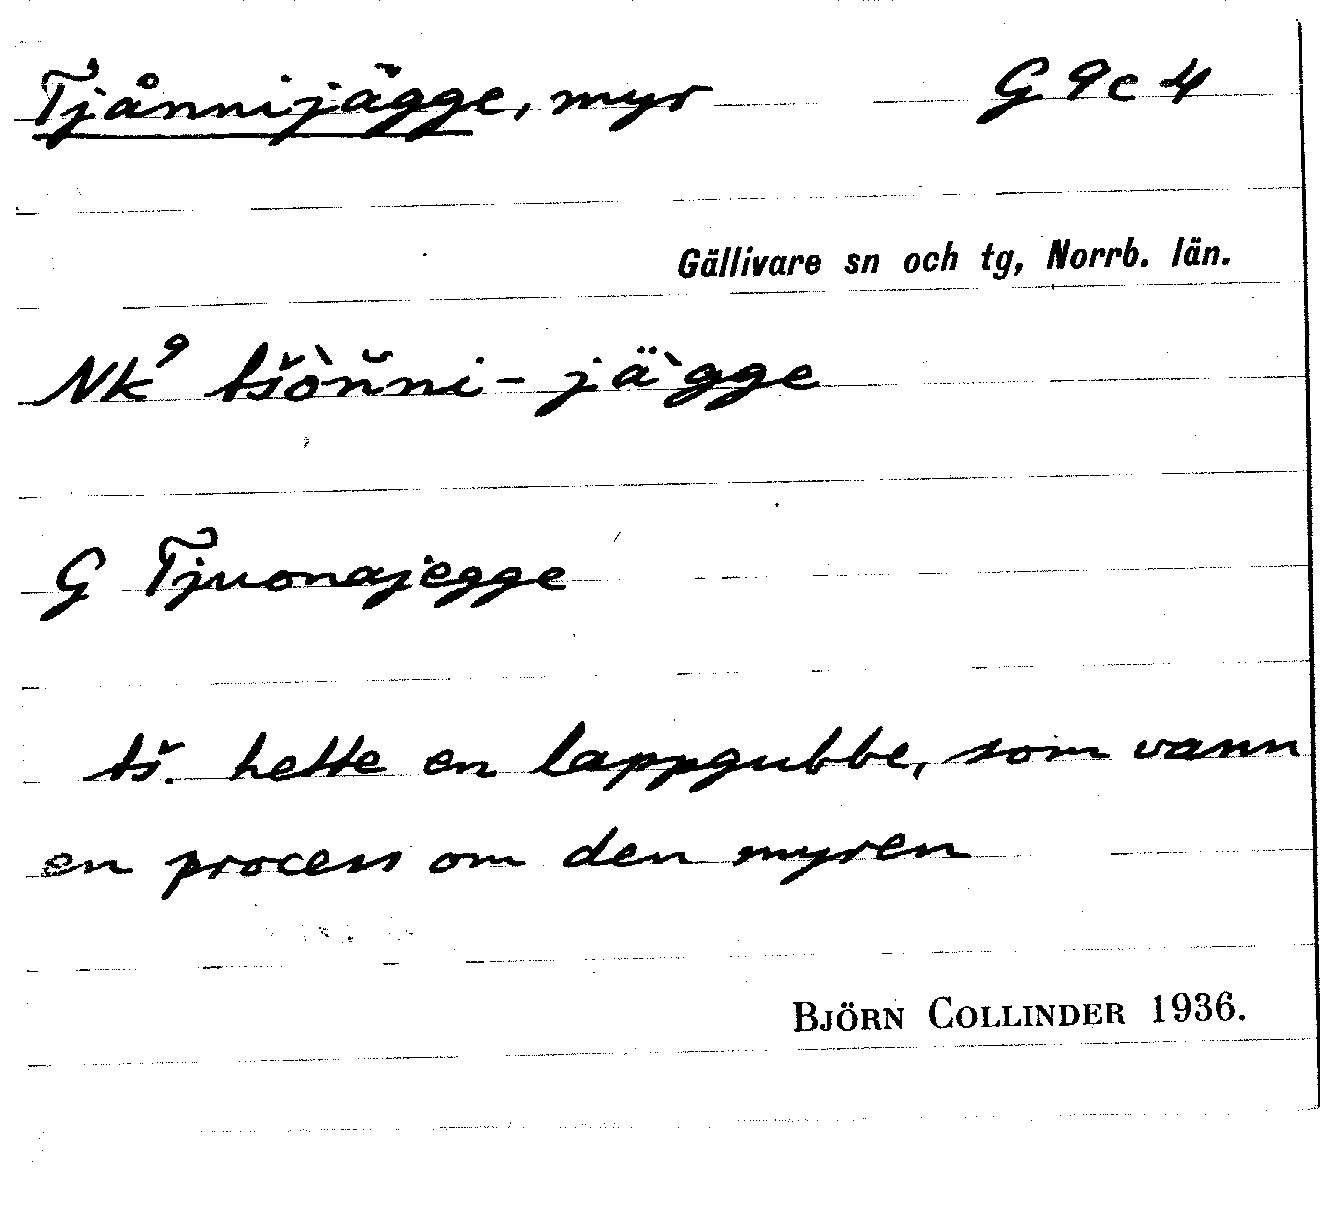 Tjånnijägge, myr G 9c 4
Gällivare sn och tg, Norrb. län.
Nk⁹ tšòn̆ni-jä̀gge
G Tjuonajegge
tš. hette en lappgubbe, som vann
en process om den myren
BJÖRN COLLINDER 1936.